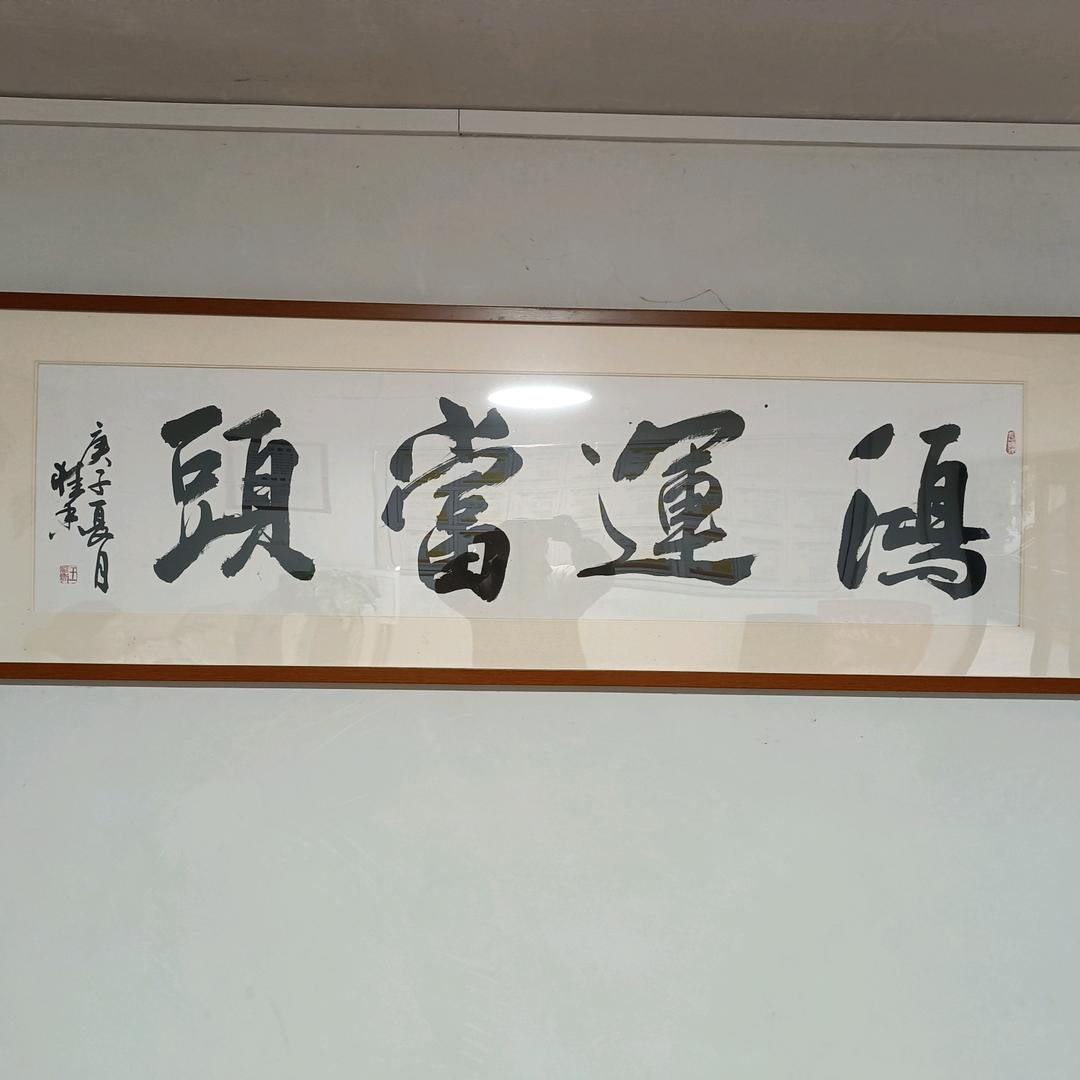 鴻運當頭
庚子夏月